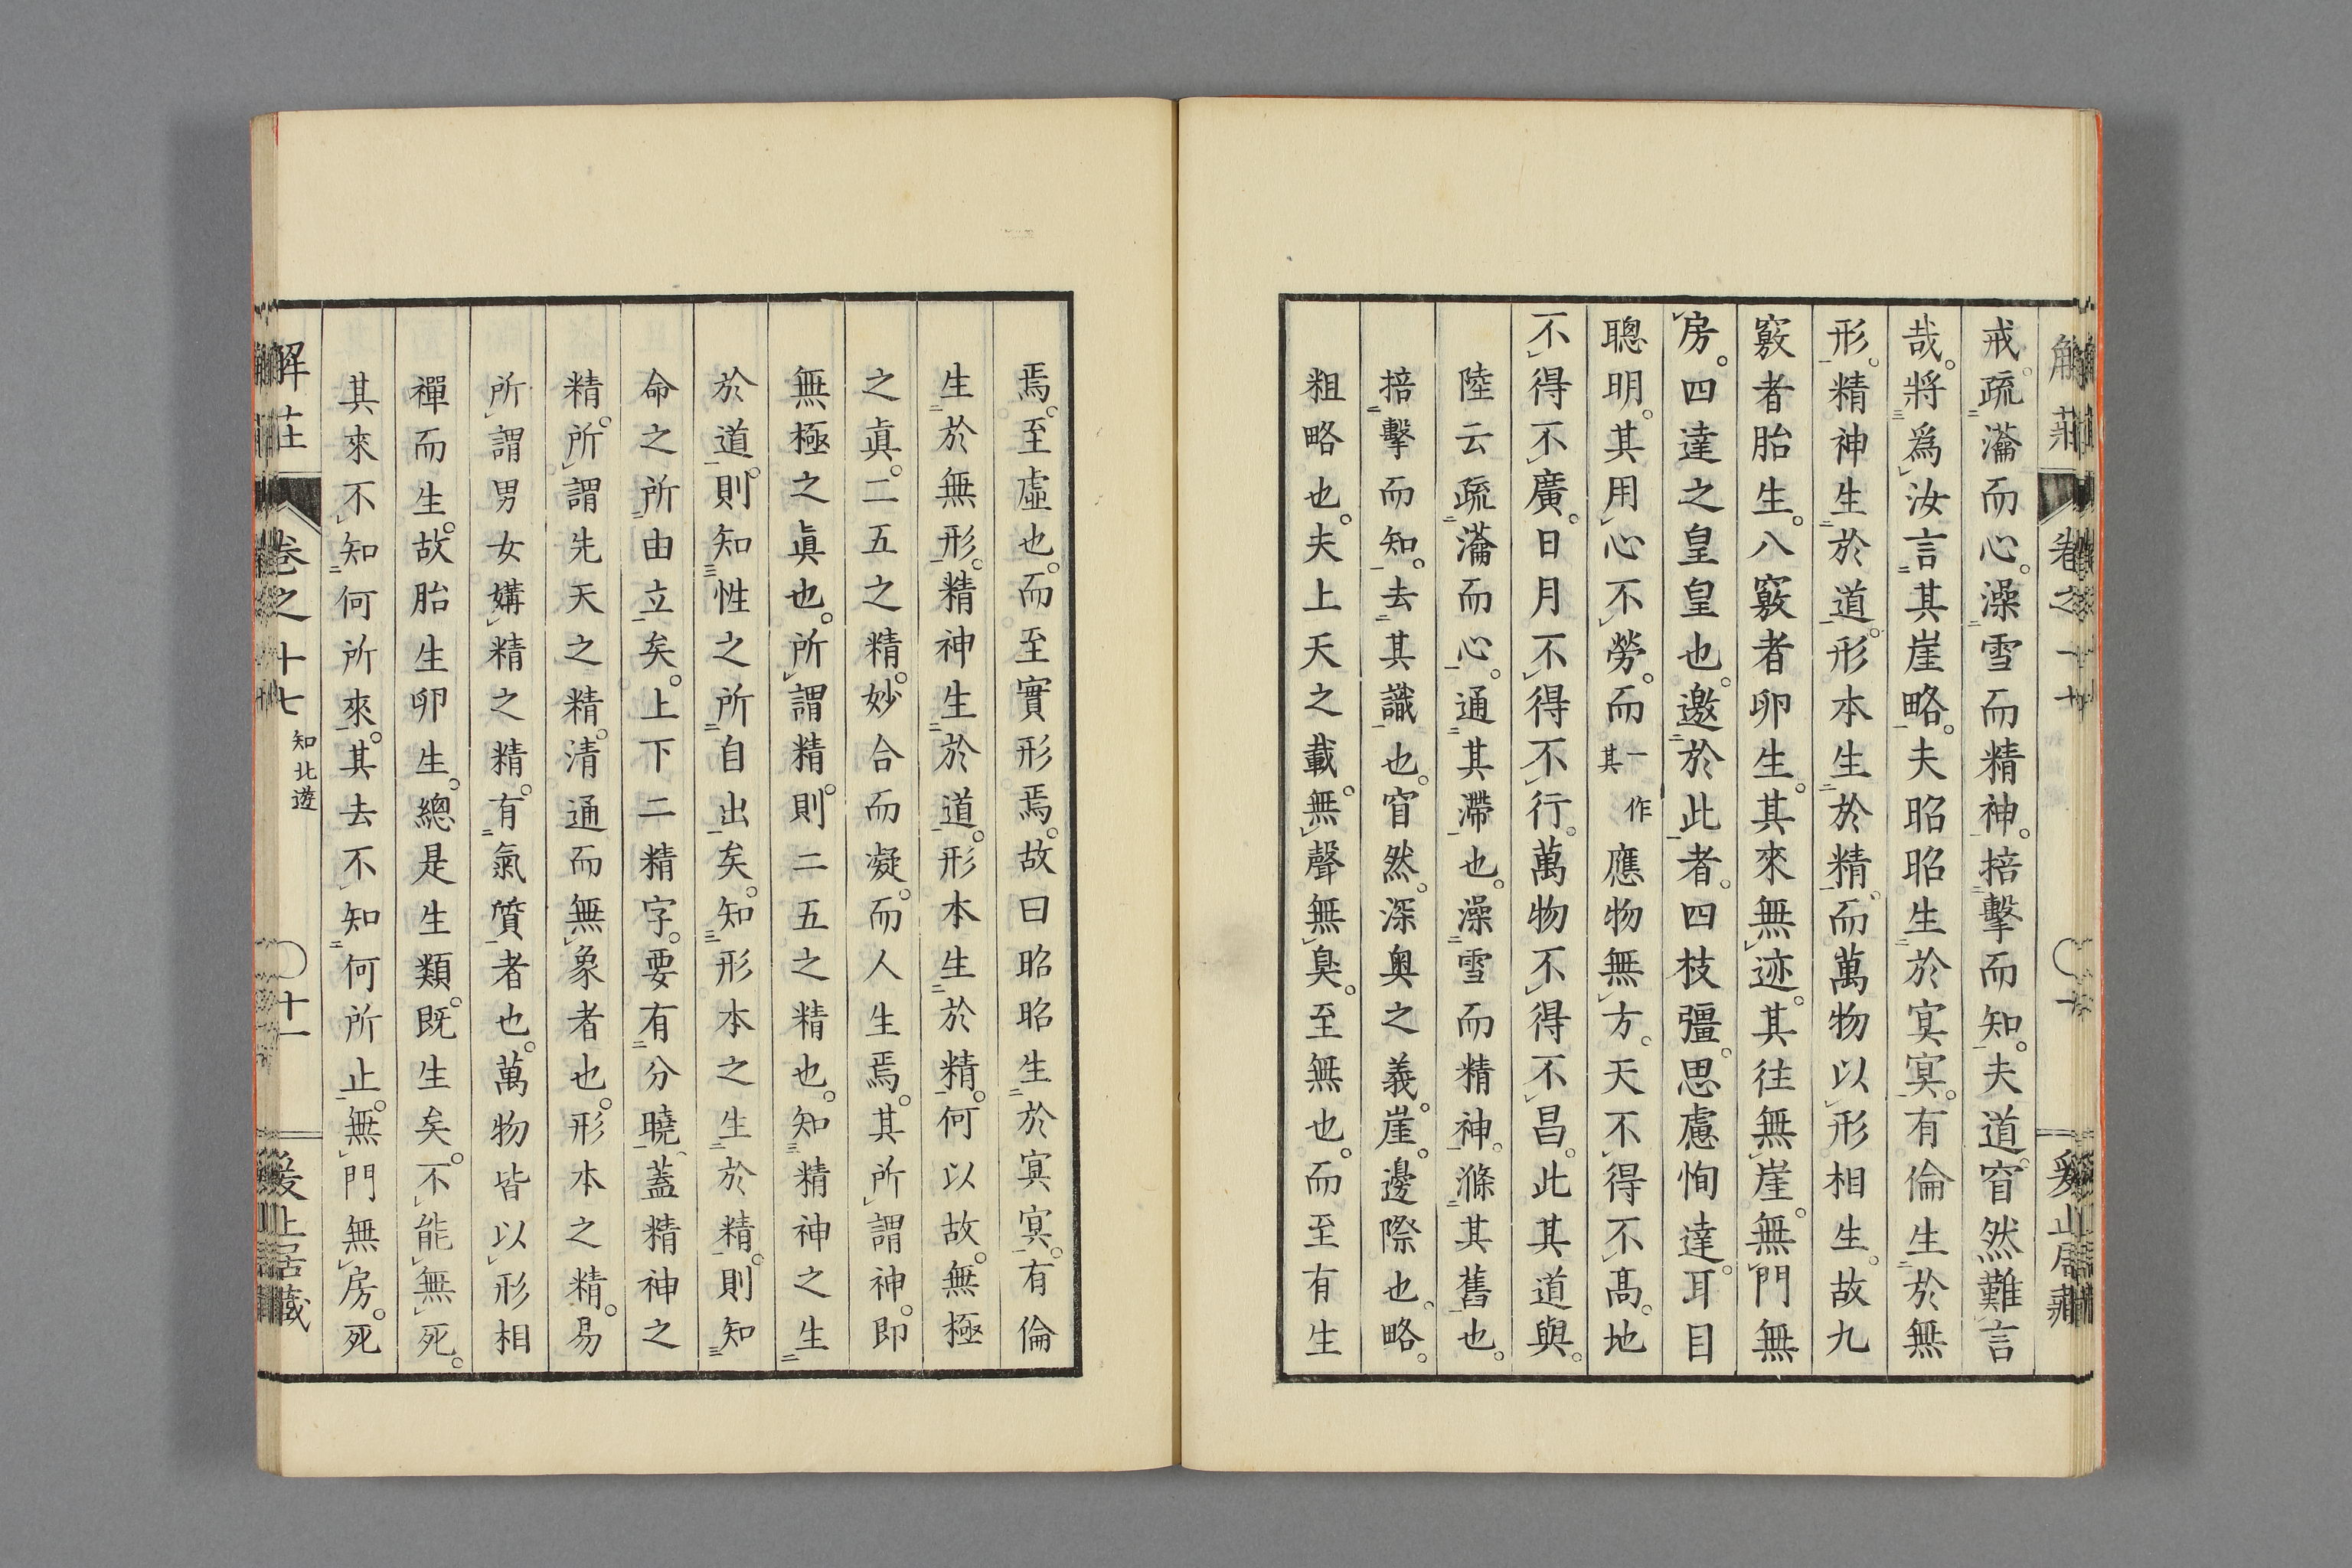 戒。疏瀹而心。澡雪而精神。掊擊而知。夫道。窅然難言
哉。將爲汝言其崖略。夫昭昭生於冥冥。有倫生於無
形。精神生於道。形本生於精。而萬物以形相生。故九
竅者胎生。八竅者卵生。其來無迹。其往無崖。無門無
房。四達之皇皇也。邀於此者。四枝彊。思慮恂達。耳目
聰明。其用心不勞。而一作其應物無方。天不得不高。地
不得不廣。日月不得不行。萬物不得不昌。此其道與。
陸云疏瀹而心。通其滯也。澡雪而精神。滌其舊也。
掊擊而知。去其識也。窅然。深奥之義。崖。邊際也。略。
粗略也。夫上天之載。無聲無臭。至無也。而至有生
焉。至虛也。而至實形焉。故曰昭昭生於冥冥。有倫
生於無形。精神生於道。形本生於精。何以故。無極
之眞。二五之精。妙合而凝。而人生焉。其所謂神。即
無極之眞也。所謂精。則二五之精也。知精神之生
於道。則知性之所自出矣。知形本之生於精。則知
命之所由立矣。上下二精字。要有分曉、蓋精神之
精。所謂先天之精。清通而無象者也。形本之精。易
所謂男女媾精之精。有氣質者也。萬物皆以形相
禪而生。故胎生卵生。總是生類。既生矣。不能無死。
其來不知何所來。其去不知何所止。無門無房。死
解莊 卷之十七 知北遊 〇十一 爰止居藏